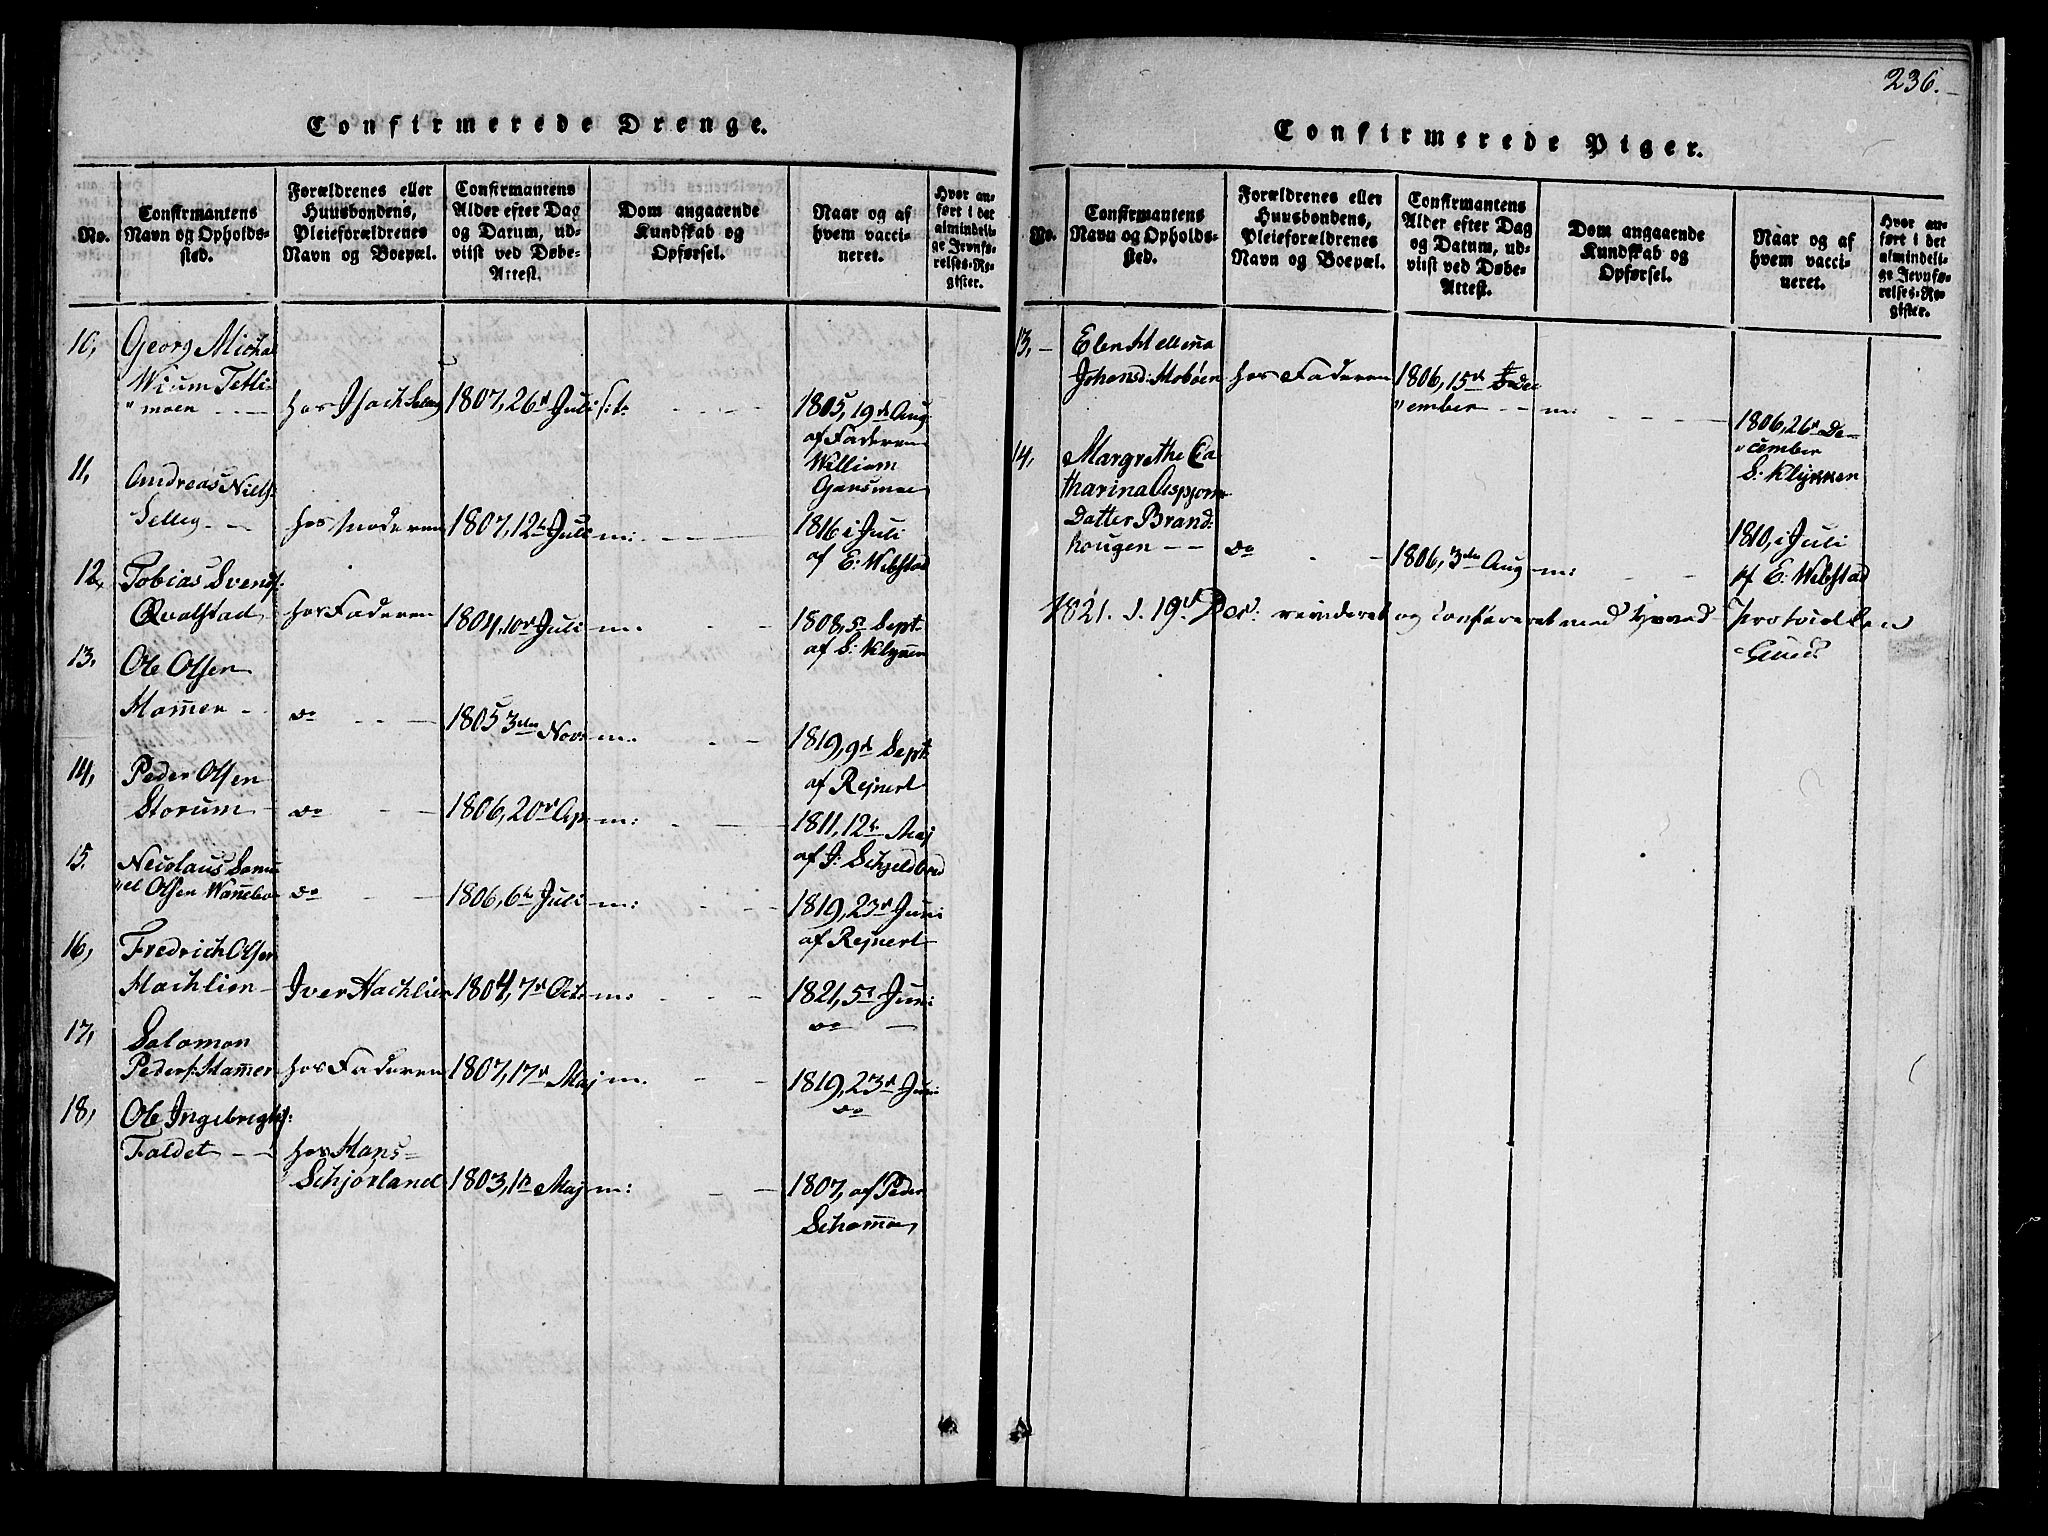 236.
Confirmerede Drenge.
No.
Confirmantens Navn og Opholds-sted.
Forældrenes eller Huusbondens, Pleieforældrenes Navn og Boepæl.
Confirmantens Alder efter Dag og Datum, ud-viist ved Døbe-Attest.
Dom angaaende Kundskab og Opførsel.
Naar og af hvem vacci-neret.
Hvor an-ført i det almindeli-ge Jevnfø-relses-Re-gister.
10, Georg Micha
Wium Tetli-
"moen - - - hos Isach Selleg 1807, 26d Juli s:t: - - - 1805, 19d Aug
af Faderen
William
11, Andreas Niels:
Selleg - - hos Moderen 1807, 12te Juli m: - - - 1816 i Juli
af E: Webstad
12, Tobias Svends:
Qvalstad hos Faderen 1804, 10d Juli m: - - 1808, 5t Sept:
af S: Klykken
13, Ole Olsen
Ham̄er - do - - - 1805 3die Nov: m: - - 1819, 9d Sept:
af Rejnert
14, Peder Olsen
Storum - do - - 1806, 20d Ap: m: - - - 1811, 12te Maj
af J: Schjeldbred
15. Nicolaus Samu
"el Olsen Wan̄ebo do - - 1806, 6te Juli m: - - - 1819, 23d Juni
af Rejnert
16, Fredrich Olsen
Hachlien - Iver Hachlien 1804, 7d Oct: m: - - - 1821, 5t Juni
do -
17, Salomon
Peders: Ham̄er hos Faderen 1807, 17d Maj m: - - 1819, 23d Juni
do
18, Ole Ingebrigts:
Faldet - - hos Hans
Schjørland 1803, 1te Maj m: - - 1807, af Peder
Confirmerede Piger.
No.
Confirmantens Navn og Opholds-sted.
Forældrenes eller Huusbondens, Pleieforældrenes Navn og Boepæl.
Confirmantens Alder efter Dag og Datum, ud-viist ved Døbe-Attest.
Dom angaaende Kundskab og Opførsel.
Naar og af hvem vacci-neret.
Hvor an-ført i det almindeli-ge Jevnfø-relses-Re-gister.
13, - Elen Mellena
Johansd: Moböen hos Faderen 1806, 15d De
"cember - - m: - - - 1806, 26d De-
"cember
S: Klykken
14, Margrethe Ca
tharina Aspjorn
Datter Brand-
hougen - - do - - 1806, 3die Aug m: - - 1810, i Juli
af E: Webstad
1821. d. 19d Dec: revideret og confereret med Hoved-Protocollen